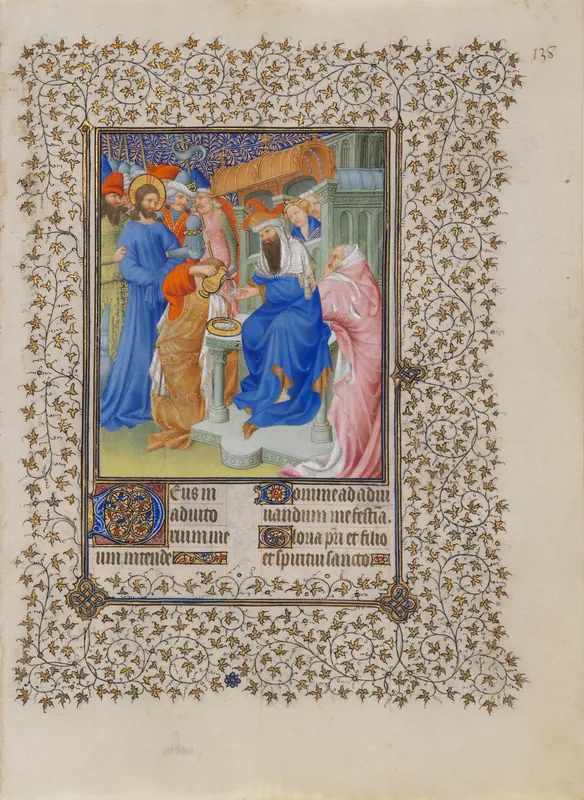 138
Deus in
adiuto
rium me
um intende
Domine ad adiu
uandum me festina.
Gloria p̄ri et filio
et spiritui sancto